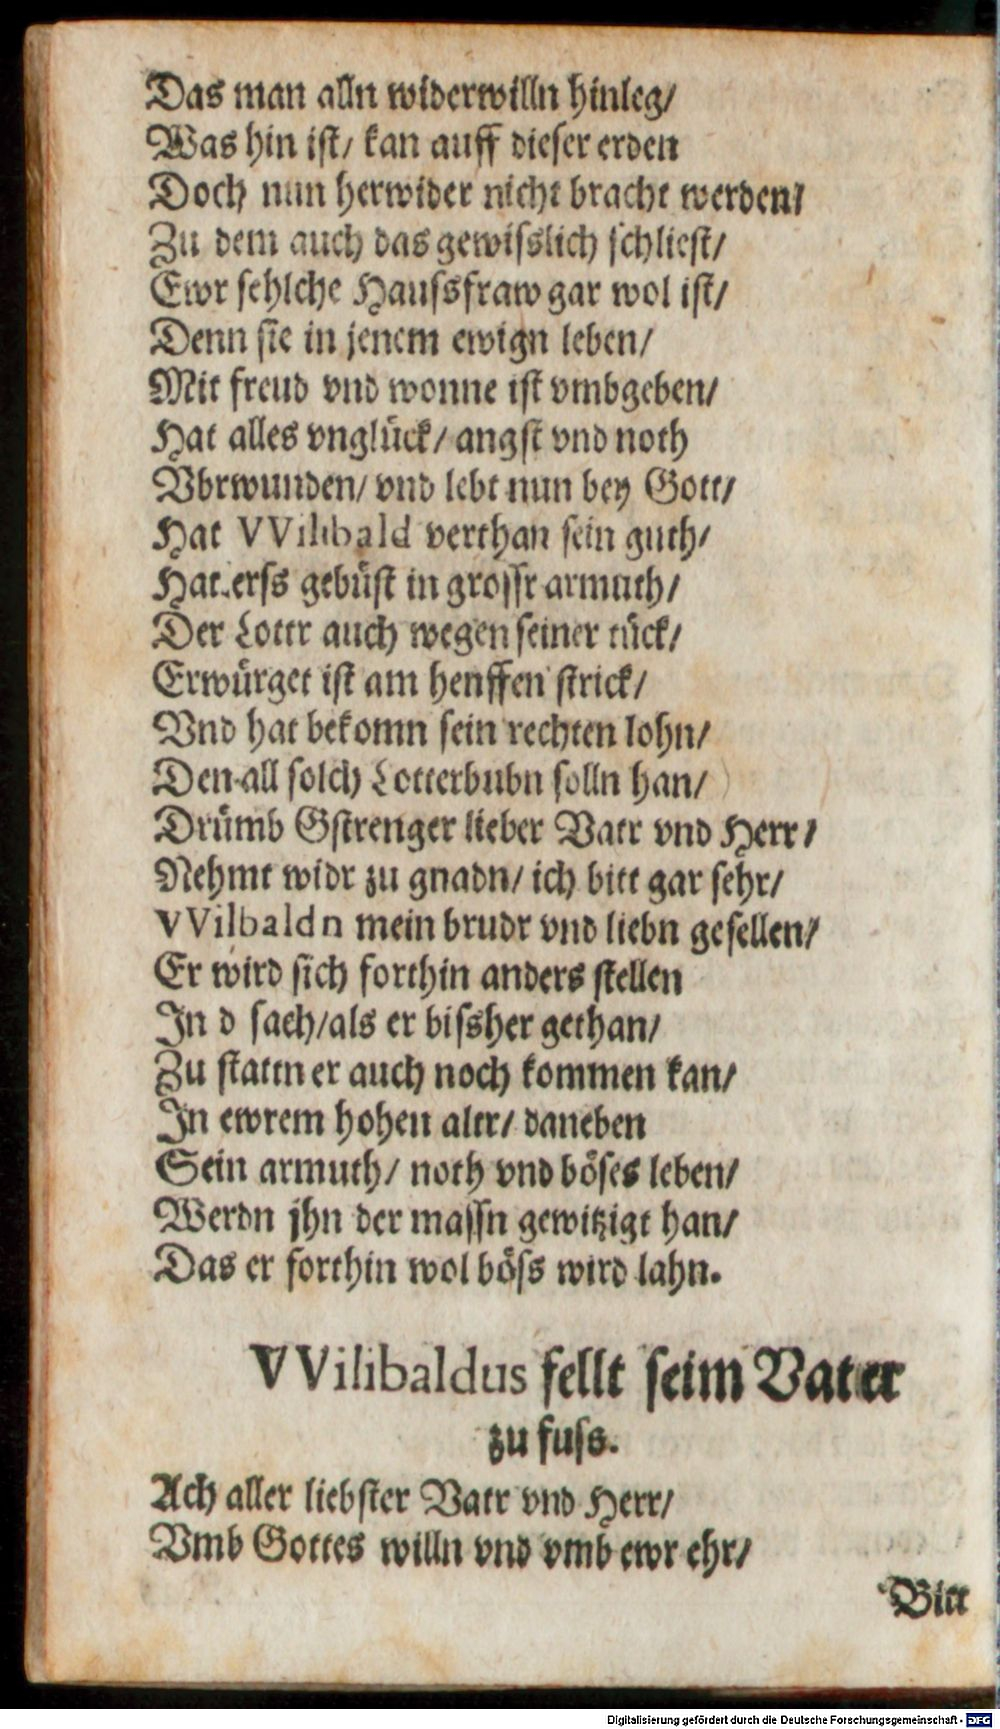 Das man alln widerwilln hinleg/
Was hin ist/ kan auff dieser erden
Doch nun herwider nicht bracht werden/
Zu dem auch das gewisslich schliest/
Ewr sehlche Haussfraw gar wol ist/
Denn sie in jenem ewign leben/
Mit freud vnd wonne ist vmbgeben/
Hat alles vnglück/ angst vnd noth
Vbrwunden/ vnd lebt nun bey Gott/
Hat VVilibald verthan sein guth/
Hat erss gebüst in grossr armuth/
Der Lottr auch wegen seiner tück/
Erwürget ist am henffen strick/
Vnd hat bekomn sein rechten lohn/
Den all solch Lotterbubn solln han/
Drümb Gstrenger lieber Vatr vnd Herr/
Nehmt widr zu gnadn/ ich bitt gar sehr/
VVilbaldn mein brudr vnd liebn gesellen/
Er wird sich forthin anders stellen
In d sach/als er bissher gethan/
Zu stattn er auch noch kommen kan/
In ewrem hohen altr/ daneben
Sein armuth/ noth vnd böses leben/
Werdn jhn der massn gewitzigt han/
Das er forthin wol böss wird lahn.
VVilibaldus fellt seim Vater
zu fuss.
Ach aller liebster Vatr vnd Herr/
Vmb Gottes willn vnd vmb ewr ehr/
Bitt
Digitalisierung gefördert durch die Deutsche Forschungsgemeinschaft - DFG